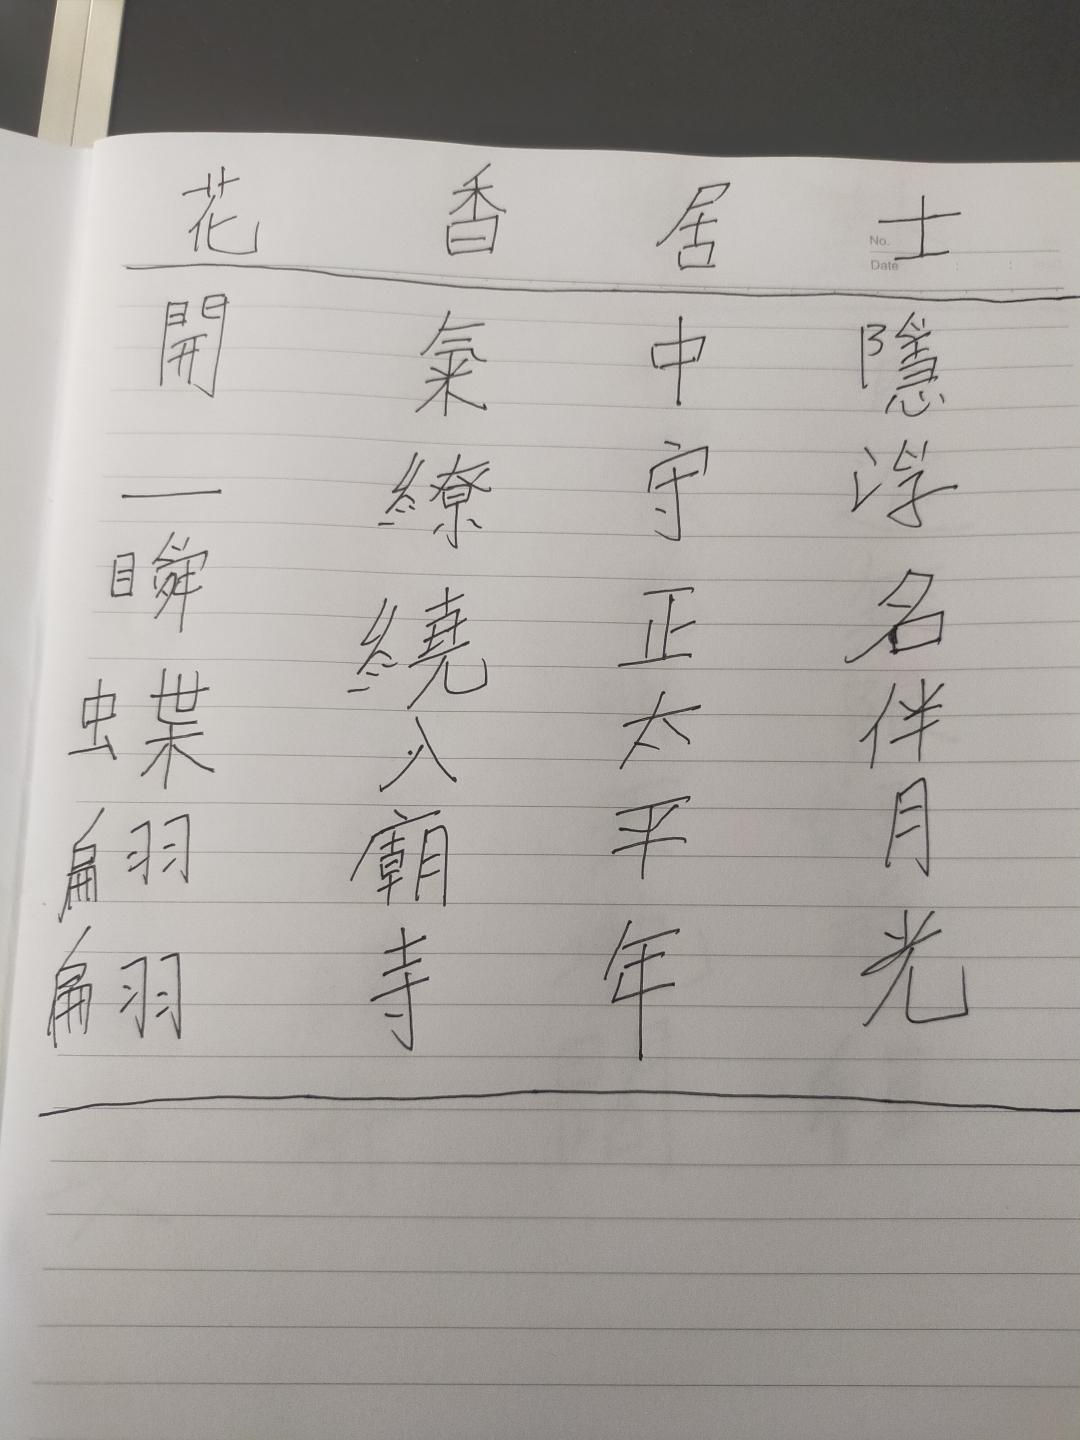 花香居士
No.
Date
開一瞬蝶翩翩
氣繚繞入廟寺
中守正太平年
隱浮名伴月光